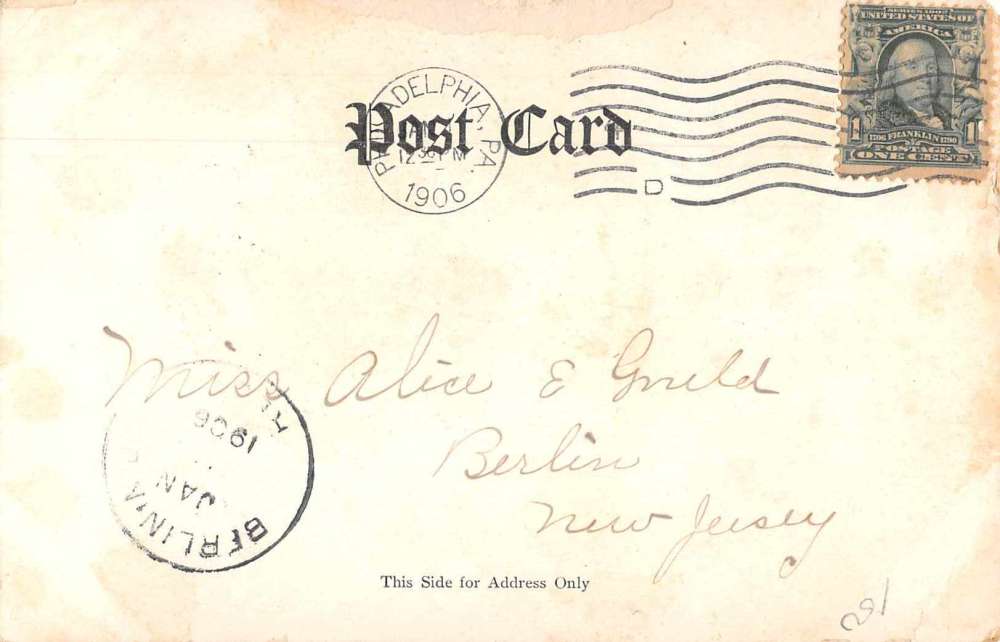 SERIES 1902
UNITED STATES OF
AMERICA
1706 FRANKLIN 1790
POSTAGE
1 ONE CENT 1
PHILADELPHIA, PA.
PM
1906
D
Post Card
Miss Alice E
Berlin
New Jersey
BERLIN
JAN
1906
This Side for Address Only